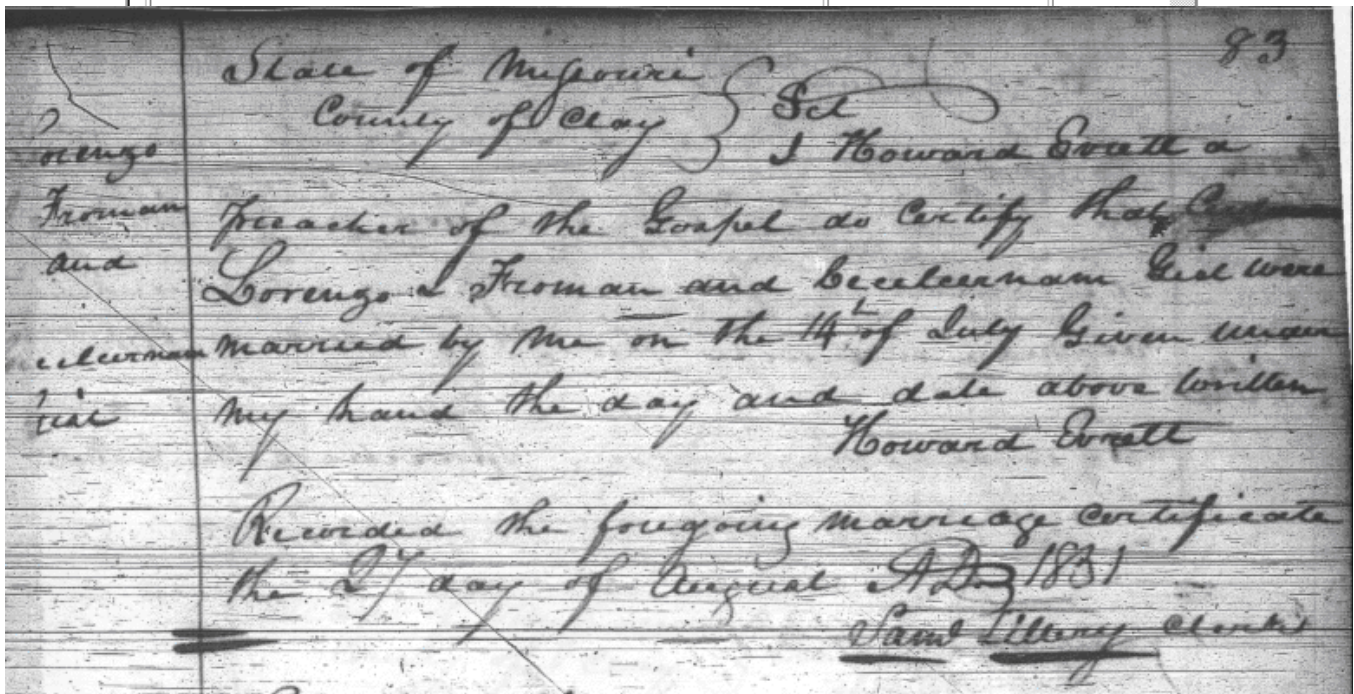 83
State of Missouri
County of Clay } Sct
I Howard Evrett a
preacher of the Gospel do Certify that
Lorenzo Froman and Gist were
married by me on the 14th of July Given under
my hand the day and date above written
Howard Evrett
Recorded the foregoing marriage certificate
the 27 day of August AD 1831
Saml Tillery Clerk
orenzo
Froman
and